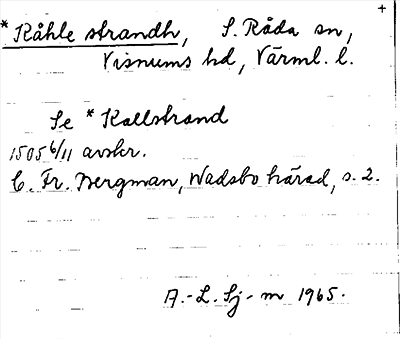 +
* Kåhle strandh, S. Råda sn,
Visnums hd, Värml. l.
Se * Kallstrand
1505 6/11 avskr.
C. Fr. Bergman, Wadsbo härad, s. 2.
A.-L. Sj-m 1965.